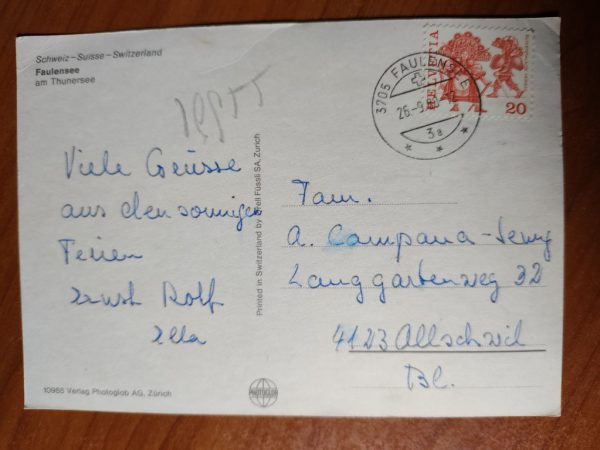 Schweiz–Suisse–Switzerland
Faulensee
am Thunersee
Viele Grüsse
aus den sonnigen
Ferien
Ernst Rolf
Ella
10966 Verlag Photoglob AG, Zürich
Printed in Switzerland by Orell Füssli SA, Zurich
PHOTOGLOB
3705 FAULENSEE
26.-9.
3a
HELVETIA
20
Fam.
A. Campana-
Langgartenweg 32
4123 Allschwil
BL.